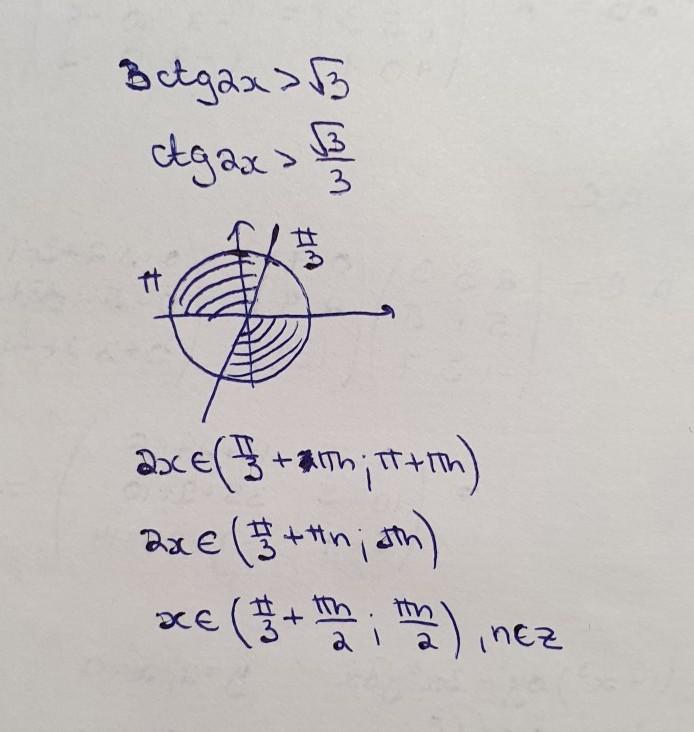 3ctg2x > √3
ctg2x > √3/3
π π/3
2x ∈ (π/3 + πn; π + πn)
2x ∈ (π/3 + πn; πn)
x ∈ (π/3 + πn/2; πn/2), n∈z